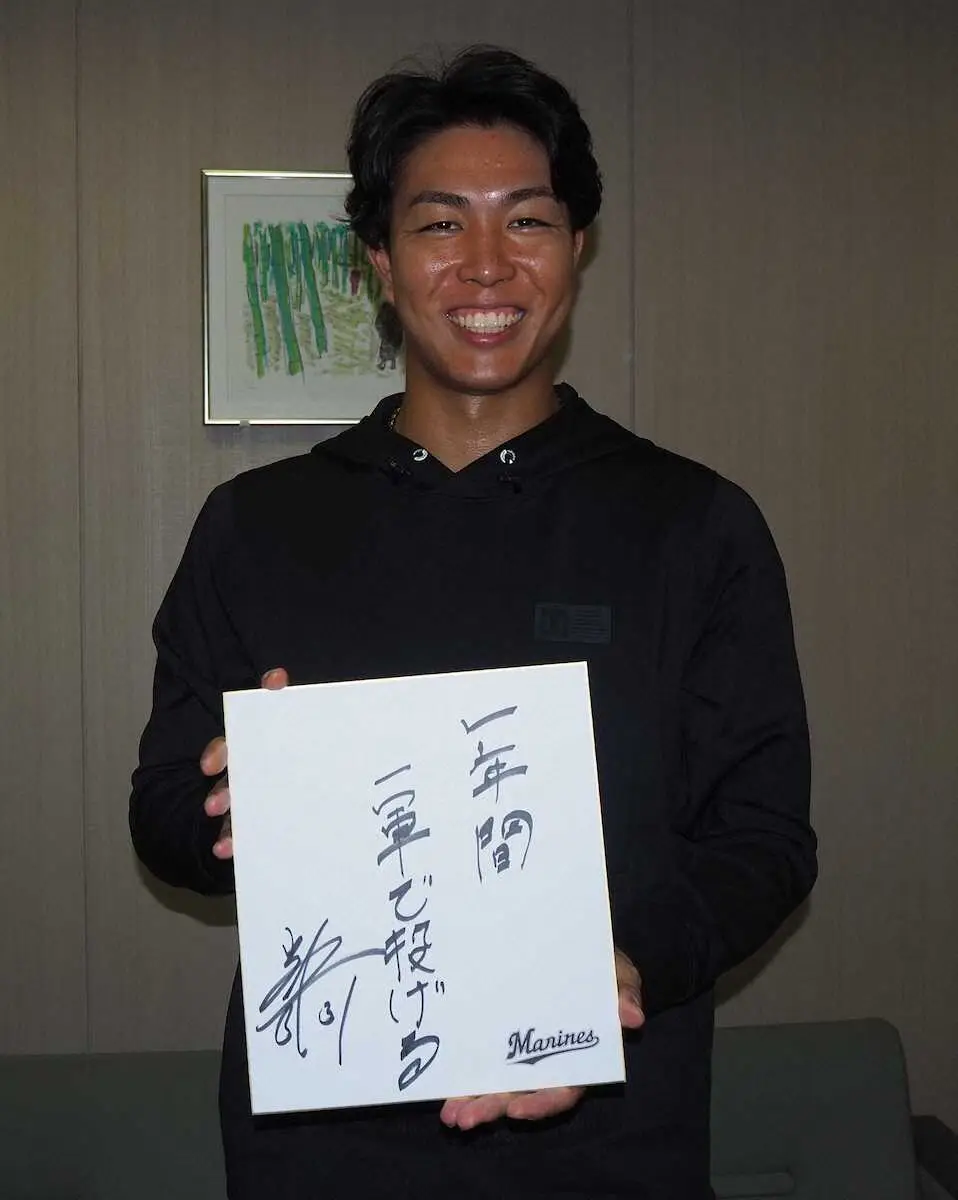 一年間
一軍で投げる
31
Marines